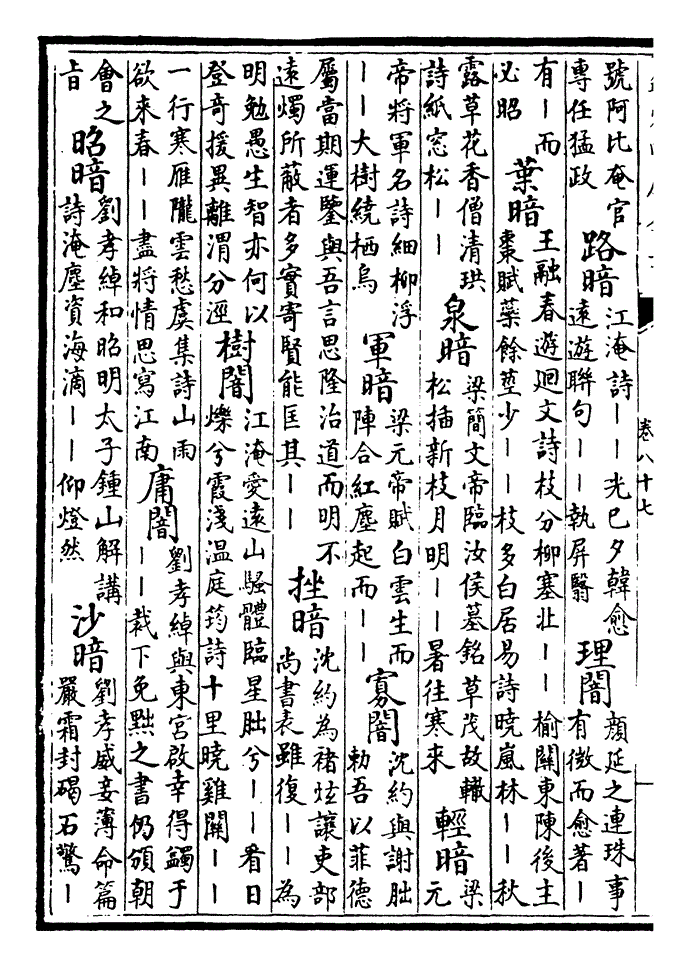 號阿比奄官
專任猛政
路暗
江淹詩丨丨光已夕韓愈
遠遊聯句丨丨執屏翳
理闇
顔延之連珠事
有微而愈著丨
有丨而
必昭
葉暗
王融春遊迴文詩枝分柳塞北丨丨榆關東陳後主
棗賦藥餘莖少丨丨枝多白居易詩曉嵐林丨丨秋
露草花香僧清珙
詩紙窓松丨丨
泉暗
梁簡文帝臨汝侯墓銘草茂故轍
松插新枝月明丨丨暑往寒來
輕暗
梁
元
帝將軍名詩細柳浮
丨丨大樹繞栖烏
軍暗
梁元帝賦白雲生而
陣合紅塵起而丨丨
寡闇
沈約與謝朏
勅吾以菲德
屬當期運鑒與吾言思隆治道而明不
遠燭所蔽者多實寄賢能匡其丨丨
挫暗
沈約為褚炫讓吏部
尚書表雖復丨丨為
明勉愚生智亦何以
登奇援異離渭分涇
樹闇
江淹愛遠山騷體臨星朏兮丨丨看日
爍兮霞淺温庭筠詩十里曉雞關丨丨
一行寒雁隴雲愁虞集詩山雨
欲来春丨丨盡將情思寫江南
庸闇
劉孝綽與東宮啟幸得蠲于
丨丨裁下免黜之書仍頒朝
會之
旨
昭暗
劉孝綽和昭明太子鍾山解講
詩淹塵資海滴丨丨仰燈然
沙暗
劉孝威妾薄命篇
嚴霜封碣石驚丨
卷八十七